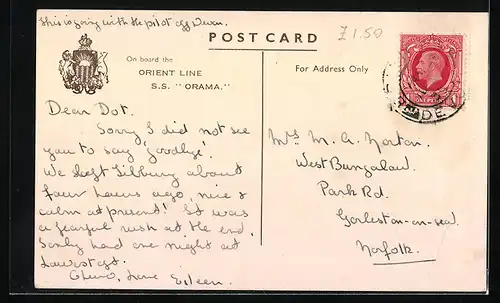 This is going with the pilot off Devon.
£1.50
POST CARD
On board the
ORIENT LINE
S.S. "ORAMA."
For Address Only
Dear Dot.
Sorry I did not see
you to say 'goodbye'.
We left Tilbury about
four hours ago, nice &
calm at present! It was
a fearful rush at the end,
I only had one night at
Lowestoft.
Cheerio, love Eileen.
Mrs M. A. Norton.
West Bungalow
Park Rd.
Gorleston-on-sea.
Norfolk.
ONE PENNY
DE